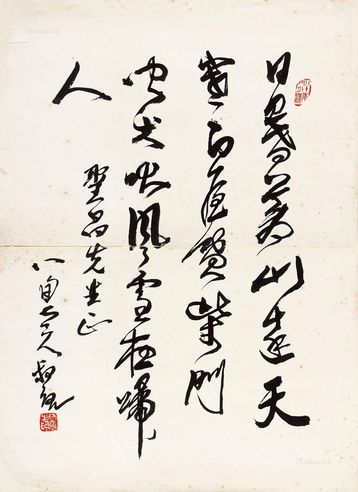 日暮蒼山遠天
寒白屋貧柴門
聞犬吠風雪夜歸
人
聖品先生正